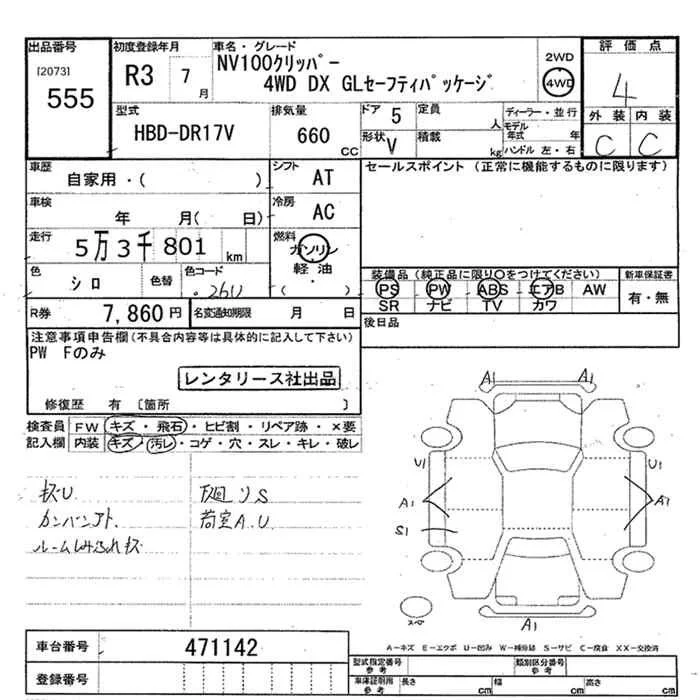 出品番号
[2073]
555
初度登録年月
R3 7月
車名・グレード
NV100クリッパー
4WD DX GLセーフティパッケージ
2WD
4WD
評価点
4
外装 内装
C C
型式
HBD-DR17V
排気量
660 CC
ドア 5
定員 人
形状 V
積載 kg
ディーラー・並行
モデル年式 年
ハンドル 左・右
車歴
自家用・( )
シフト
AT
セールスポイント (正常に機能するものに限ります)
車検
年 月( 日)
冷房
AC
走行
5万3千801 km
燃料
ガソリン
軽油
・
( )
色
シロ
色替
色コード
26U
装備品(純正品に限り○をつけてください)
PS PW ABS エアB AW
SR ナビ TV カワ
新車保証書
有・無
R券 7,860円
名変通知期限 月 日
後日品
注意事項申告欄(不具合内容等は具体的に記入して下さい)
PW Fのみ
レンタリース社出品
修復歴 有 〔箇所 〕
検査員記入欄
FW キズ・飛石・ヒビ割・リペア跡・×要
内装 キズ・汚レ・コゲ・穴・スレ・キレ・破レ
キズU
カンバンアト.
下廻りS
荷室A.U
A1
A1
U1
U1
A1
A1
S1
スペア
A1
A-キズ E-エクボ U-凹み W-補修跡 S-サビ C-腐食 XX-交換済
車台番号 471142
登録番号
型式指定番号 参考
類別区分番号 参考
車庫証明用 参考
長さ cm 幅 cm 高さ cm